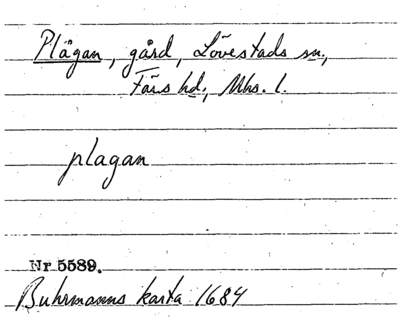 Plågan, gård, Lövestads sn.,
Färs hd., Mhs. l.
plagan
Nr 5589.
Buhrmanns karta 1684